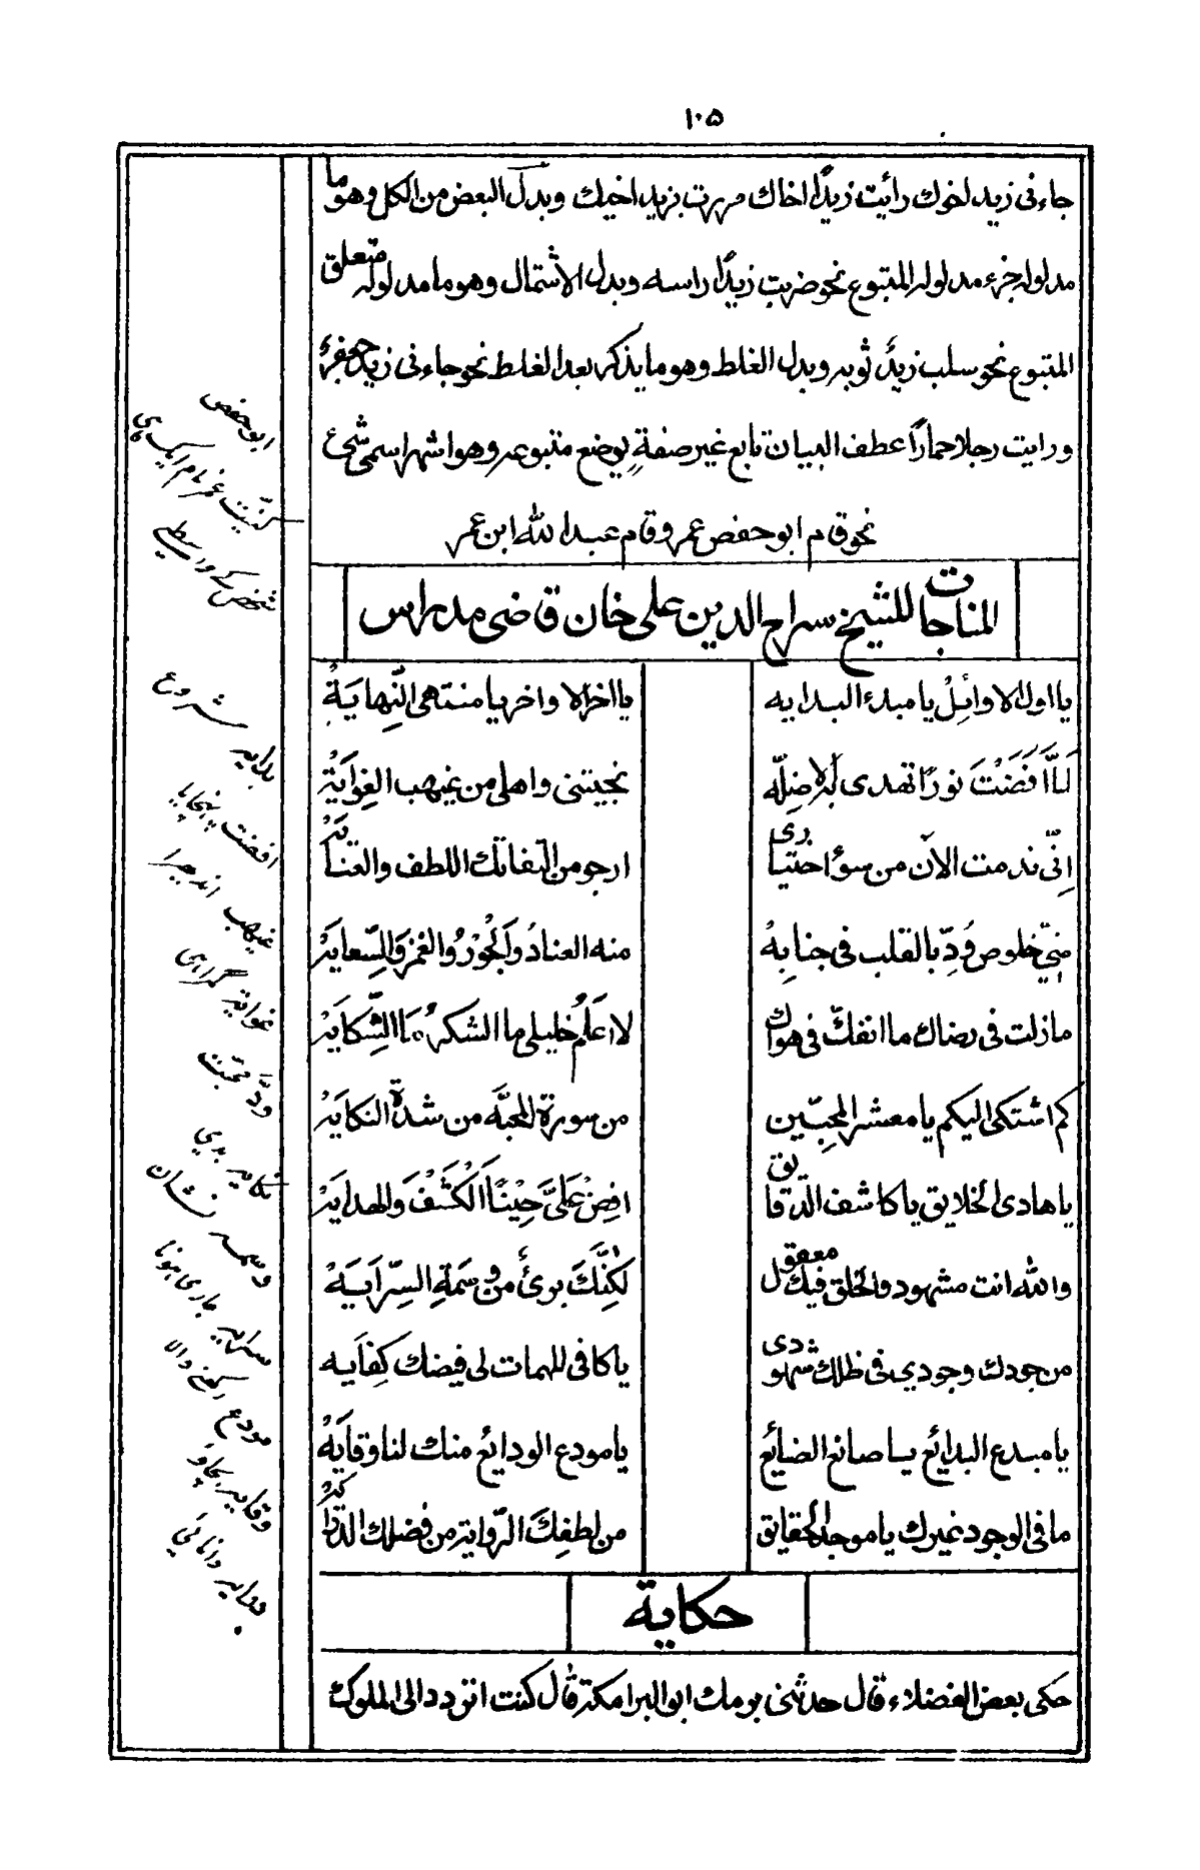 ۱۰۵
جاءنی زید اخوك رأیت زیدًا اخاك مررت بزید اخیك وبدل البعض من الكل وهو ما
مدلوله جزء مدلول المتبوع نحو ضربت زیدًا راسه وبدل الاشتمال وهو ما مدلوله متعلق
المتبوع نحو سلب زیدٌ ثوبه وبدل الغلط وهو ما یذكر بعد الغلط نحو جاءنی زید جعفرٌ
ورایت رجلا حمارًا عطف البیان تابع غیر صفةٍ یوضع متبوعه وهو اشهر اسمی شئ
نحو قام ابو حفص عمر وقام عبد الله ابن عمر
المناجات للشیخ سراج الدین علی خان قاضی مدراس
یا اول الاوائِلُ یا مبدء البدایه
یا اخر الاواخر یا منتهی النِّهایَةُ
لَمَّا اَفَضْتَ نورًا تهدی به الاضِلّه
نجیتنی واهلی من غیهب الغِوَایَةْ
اِنّی ندمت الآن من سوء اختیاری
ارجو من التفاتك اللطف والعنایَهْ
منّی خلوص وُدِّ بالقلب فی جنابِهْ
منه العنادُ والجَوْرُ والغمز والسِّعایَهْ
مازلت فی رضاك ما انفكّ فی هواك
لا اَعلَمُ خلیلی ما الشكرُ ما الشِّكایَهْ
كم اشتكی الیكم یا معشر المحِبّین
من سورة المحبّه من شدة النكایَهْ
یا هادی الخلایق یا كاشف الدقایق
افِضْ عَلَیَّ حِیْنًا اَلْكَشْفَ والهدایَهْ
والله انت مشهود والخلق فیك مفقود
لٰكِنَّكَ برئ من وسمَةِ السِّرَایَهْ
من جودك وجودی فی ظلك شهودی
یا كافی المهمات لی فیضك كِفایَه
یا مبدع البدائع یا صانع الضائع
یا مودع الودایع منك لنا وقایَهْ
ما فی الوجود غیرك یا موجد الحقایق
من لطفِكَ الرّوایة من فضلك الدِّرایَهْ
حكایة
حكی بعض الفضلاء قال حدثنی برمك ابو البرامكة قال كنت اتودد الی الملوك
ابو حفص
كنیّت عمر نام ایک ہی
شخص کے واسطے
بدایه شروع
افضت پہنچایا
غیهب اندھیرا
غوایة گمراہی
ودّ محبّت
نكایه بدی
وسمه نشان
سرایه جاری ہونا
مودع رکھنے والا
وقایه بچاؤ
درایه دانائی